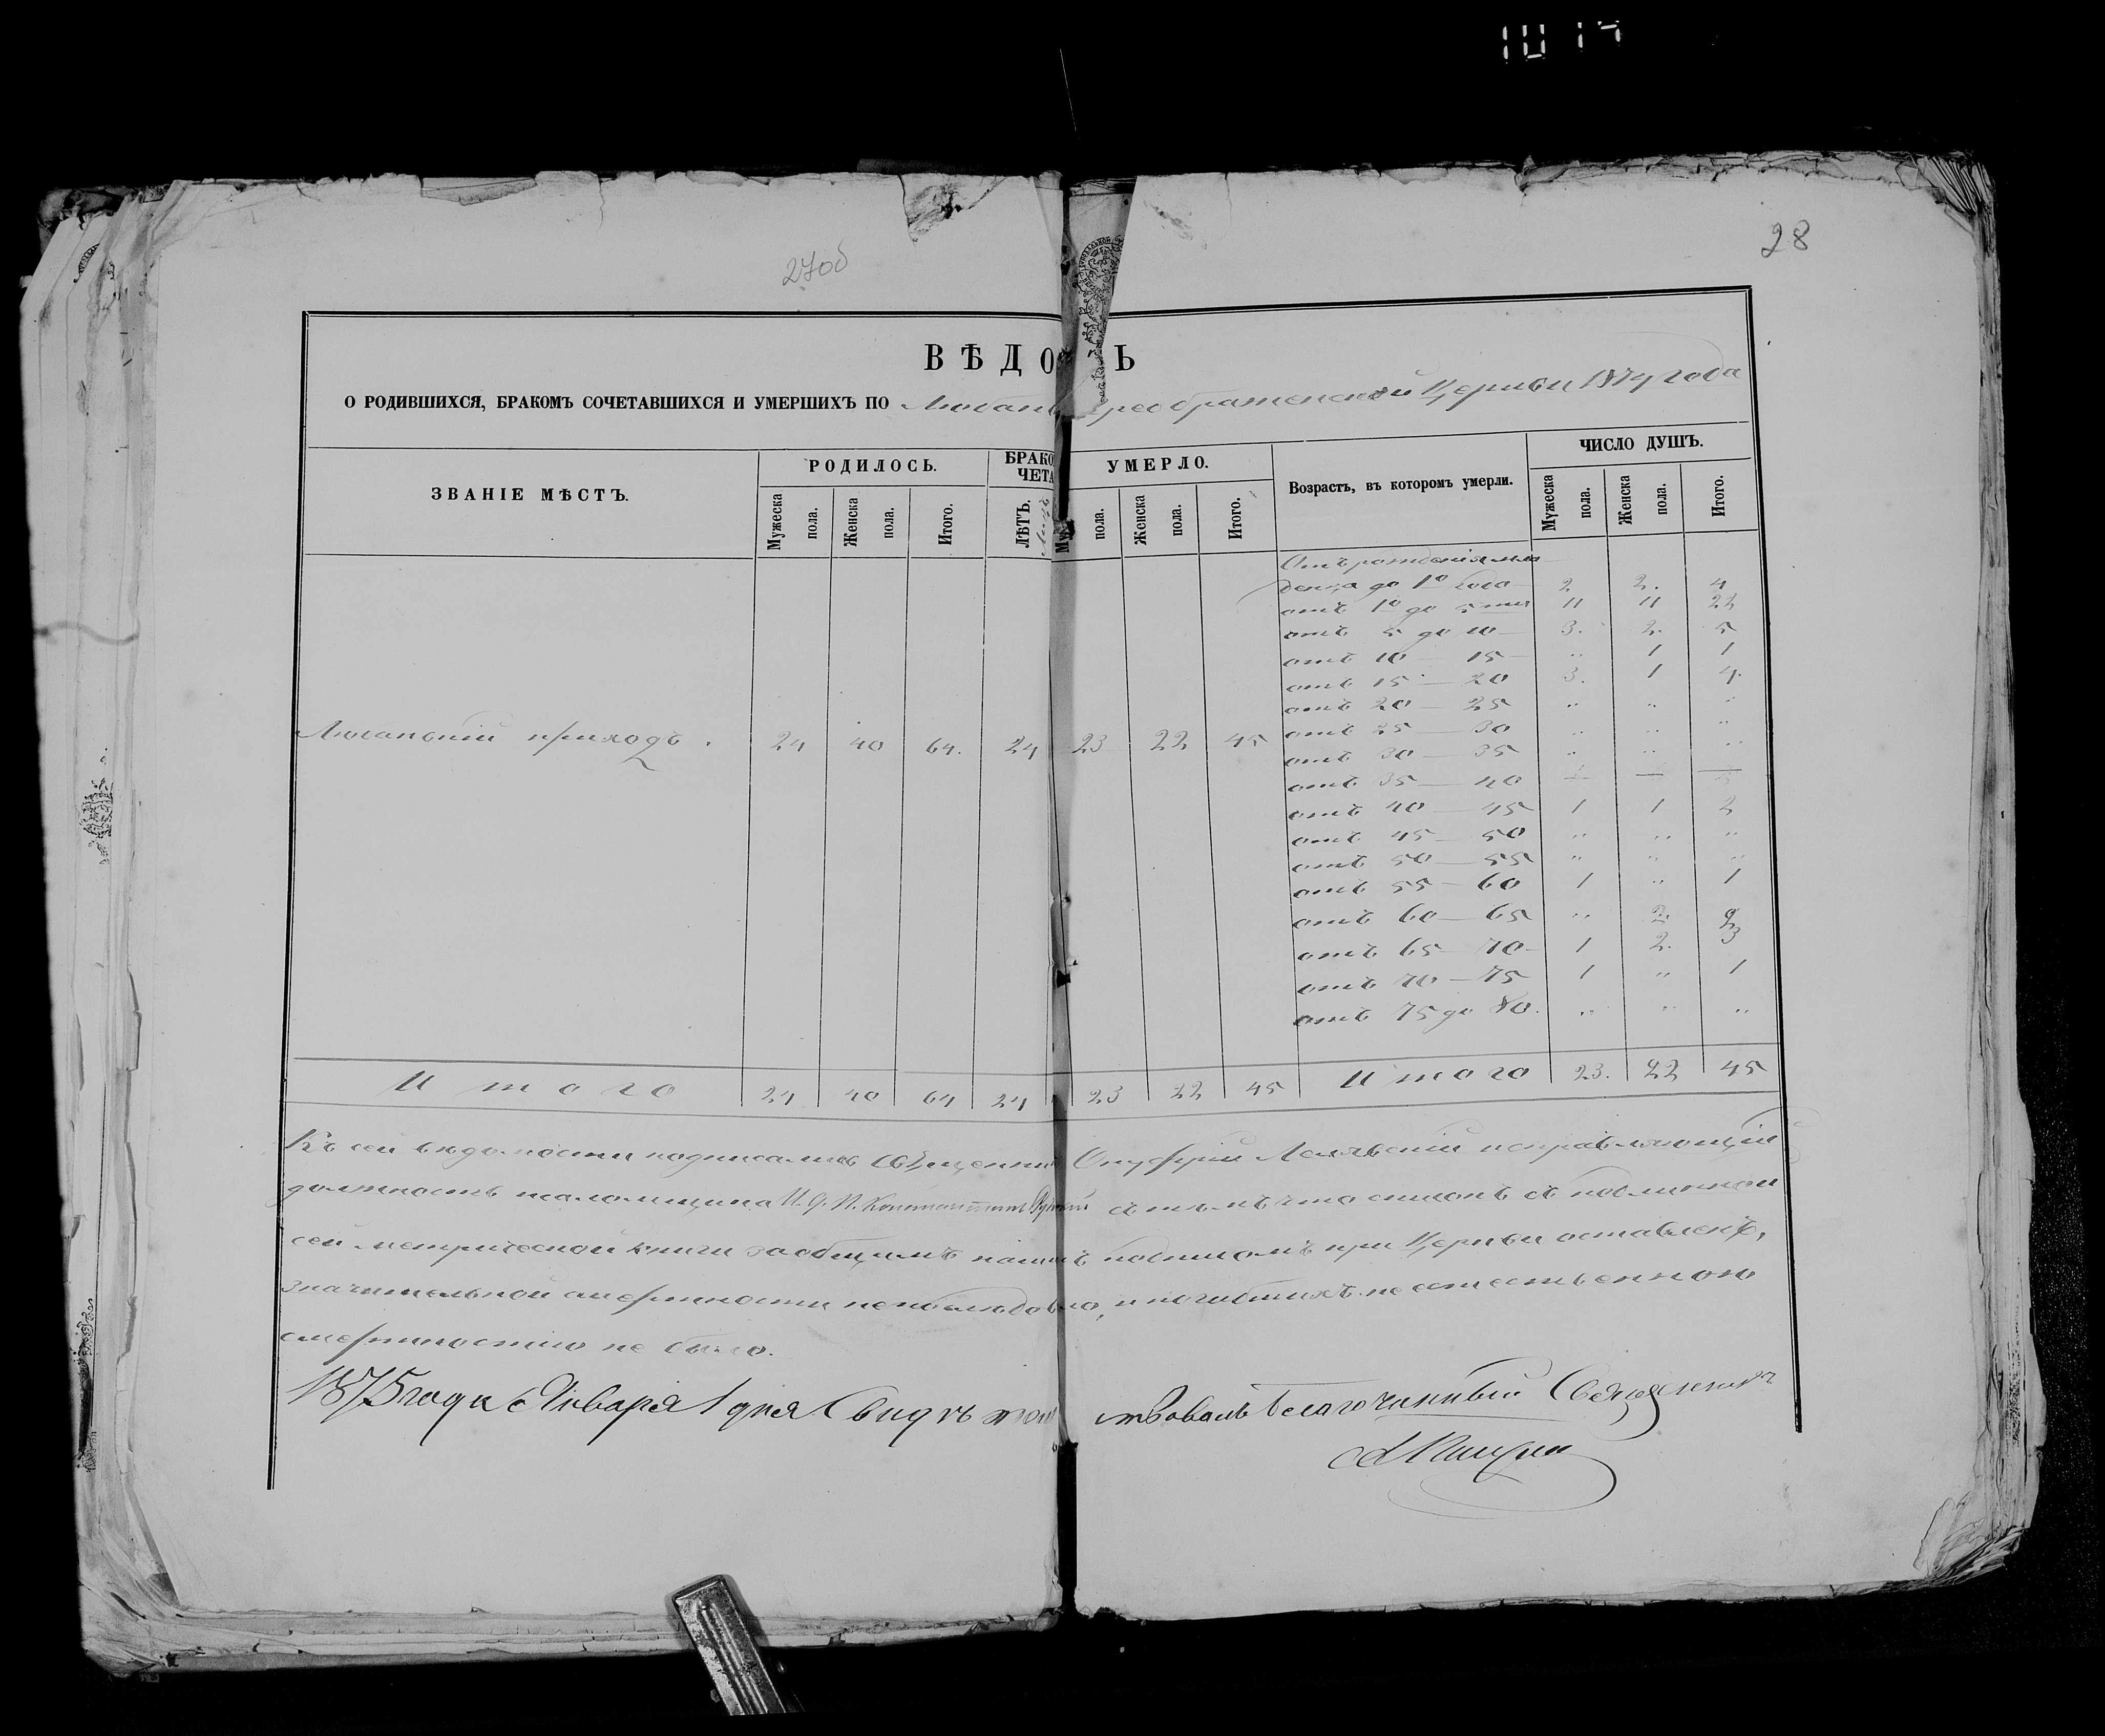 1017
28
27об
ВѢДО Ь
О РОДИВШИХСЯ, БРАКОМЪ СОЧЕТАВШИХСЯ И УМЕРШИХЪ ПО Любан Преображенской Церкви 1874 года
ЗВАНІЕ МѢСТЪ. РОДИЛОСЬ. БРАКО ЧЕТА УМЕРЛО. Возрастъ, въ которомъ умерли. ЧИСЛО ДУШЪ.
Мужеска пола. Женска пола. Итого. ЛѢТЪ. Му пола. Женска пола. Итого. Мужеска пола. Женска пола. Итого.
Отъ рожденія мла
денца до 1го года 2 2. 4
отъ 1го до 5ти 11 11 22
отъ 5 до 10 3. 2. 5
отъ 10 — 15 " 1 1
отъ 15 — 20 3. 1 4.
отъ 20 — 25 " " "
отъ 25 — 30 " " "
Любанскій приходъ. 24 40 64. 24 23 22 45
отъ 30 — 35 " " "
отъ 35 — 40
отъ 40 — 45 1 1 2
отъ 45 — 50 " " "
отъ 50 — 55 " " "
отъ 55 — 60 1 " 1
отъ 60 — 65 " 2. 2
отъ 65 — 70 1 2. 3
отъ 70 — 75 1 " 1
отъ 75 до 80. " " "
Итого 24 40 64 24 23 22 45 Итого 23. 22 45
Къ сей вѣдомости подписались Священни Онуфрій исправляющій
должность псаломщика И. Д. П. Константинъ съ тѣмъ что списокъ съ подлинной
сей метрической книги за общимъ нашимъ подписомъ при Церкви оставленъ,
значительной смертности не было, и погибшихъ не естественною
смертностію не было.
1875 года Января 1 дня Свидѣтель ствовалъ Благочинный Священникъ